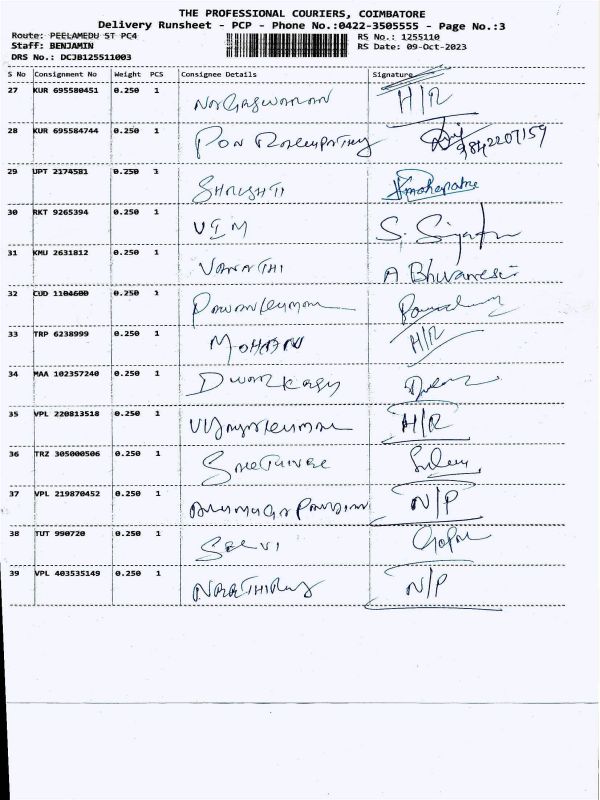 THE PROFESSIONAL COURIERS, COIMBATORE
Delivery Runsheet - PCP - Phone No.:0422-3505555 - Page No.:3
Route: PEELAMEDU ST PC4 RS No.: 1255110
Staff: BENJAMIN RS Date: 09-Oct-2023
DRS No.: DCJB125511003
S No Consignment No Weight PCS Consignee Details Signature
27 KUR 695580451 0.250 1 H/R
28 KUR 695584744 0.250 1 PON 9842207159
29 UPT 2174581 0.250 1 SHRUSHTI
30 RKT 9265394 0.250 1 S.
31 KMU 2631812 0.250 1 VANATHI A Bhuvanesh
32 CUD 1104600 0.250 1 Pawankumar
33 TRP 6238999 0.250 1 MOHAN H/R
34 MAA 102357240 0.250 1
35 VPL 220813518 0.250 1 Vijayakumar H/R
36 TRZ 305000506 0.250 1
37 VPL 219870452 0.250 1 N/P
38 TUT 990720 0.250 1 SELVI
39 VPL 403535149 0.250 1 N/P